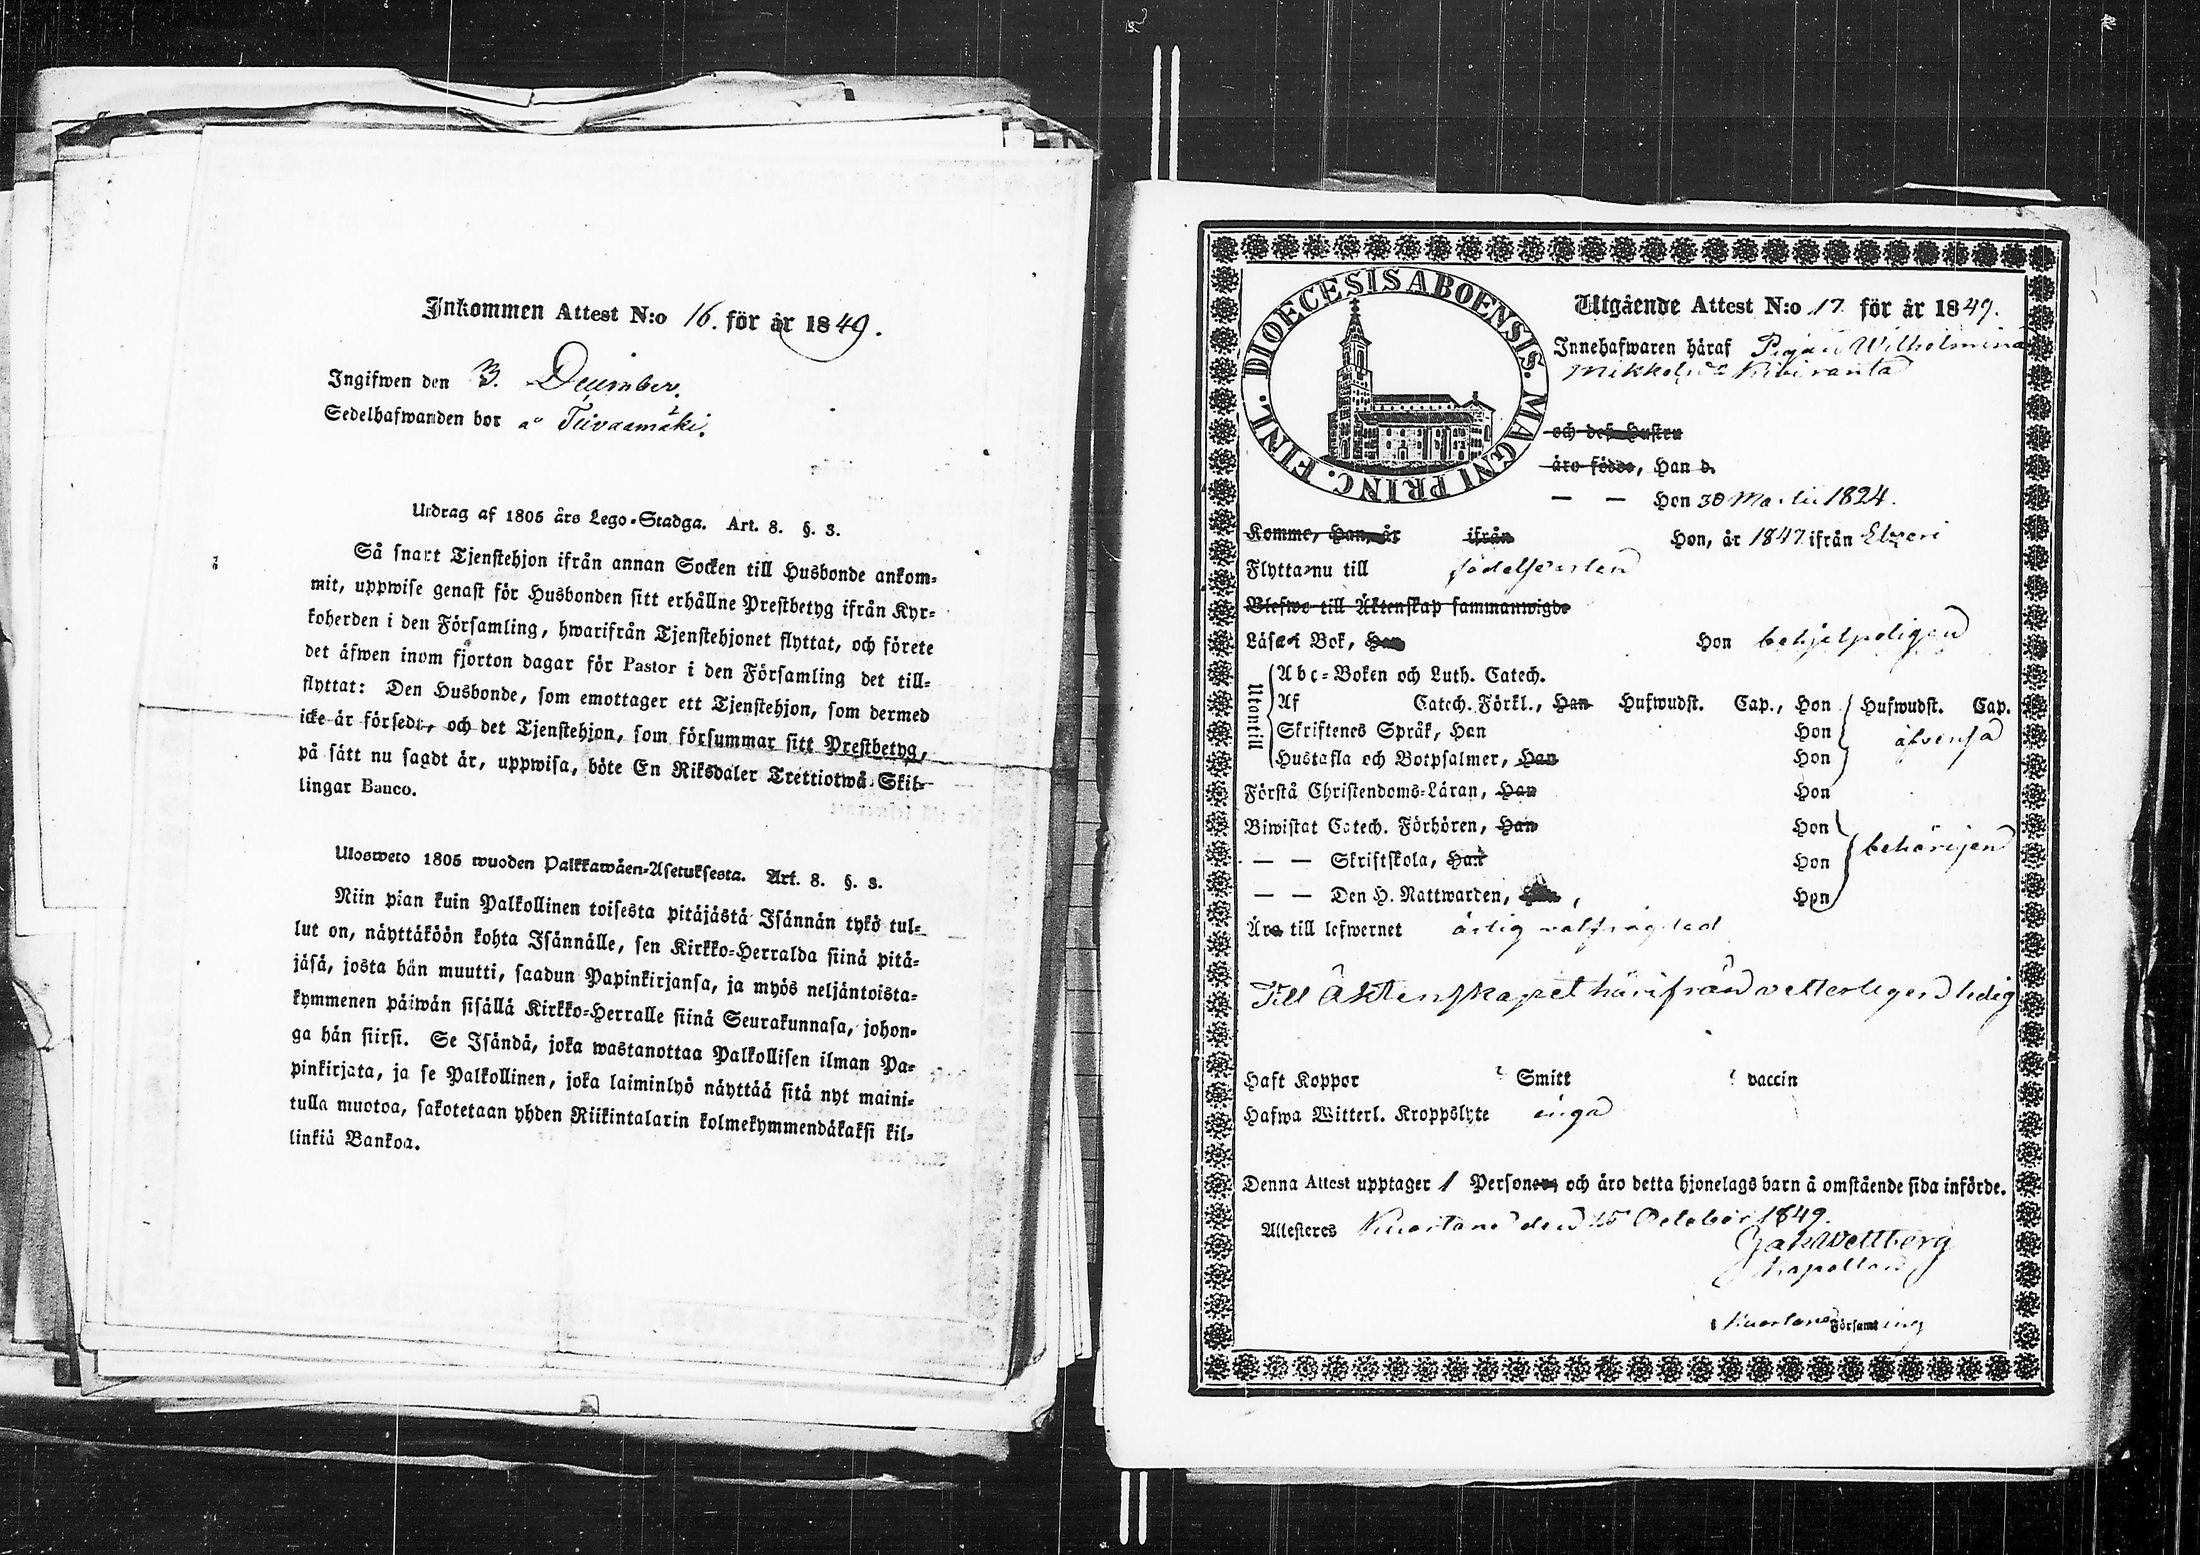 Inkommen Attest N:o 16. för år 1849.
Ingifwen den 3. December.
Sedelhafwanden bor å Tiivaamäki.
Utdrag af 1805 års Lego-Stadga. Art. 8. §. 3.
Så snart Tjenstehjon ifrån annan Socken till Husbonde ankom-
mit, uppwise genast för Husbonden sitt erhållne Prestbetyg ifrån Kyr-
koherden i den Församling, hwarifrån Tjenstehjonet flyttat, och förete
det äfwen inom fjorton dagar för Pastor i den Församling det till-
flyttat: Den Husbonde, som emottager ett Tjenstehjon, som dermed
icke är försedt, och det Tjenstehjon, som försummar sitt Prestbetyg,
på sätt nu sagdt är, uppwisa, böte En Riksdaler Trettiotwå Skil-
lingar Banco.
Ulosweto 1805 wuoden Palkkawäen-Asetuksesta. Art. 8. §. 3.
Niin pian kuin Palkollinen toisesta pitäjästä Isännän tykö tul-
lut on, näyttäköön kohta Isännälle, sen Kirkko-Herralda siinä pitä-
jäsä, josta hän muutti, saadun Papinkirjansa, ja myös neljäntoista-
kymmenen päiwän sisällä Kirkko-Herralle siinä Seurakunnasa, johon-
ga hän siirsi. Se Isändä, joka wastanottaa Palkollisen ilman Pa-
pinkirjata, ja se Palkollinen, joka laiminlyö näyttää sitä nyt maini-
tulla muotoa, sakotetaan yhden Riikintalarin kolmekymmendäkaksi kil-
linkiä Bankoa.
DIOECESIS ABOENSIS. MAGNI PRINC. FINL.
Utgående Attest N:o 17 för år 1849.
Innehafwaren häraf Pigan Wilhelmina
Mikkelsdr Kiviranta
och des Hustru
äro födde, Han d.
— — Hon 30 Martii 1824.
Komne, Han, år ifrån Hon, år 1847 ifrån
Flytta nu till födelseorten
Blefwo till Äktenskap sammanwigde
Läsa i Bok, Han Hon behjelpeligen
Utantill
Abc-Boken och Luth. Catech.
Af Catech. Förkl., Han Hufwudst. Cap., Hon Hufwudst. Cap.
Skriftenes Språk, Han Hon äfvenså
Hustafla och Botpsalmer, Han Hon
Förstå Christendoms-Läran, Han Hon
Biwistat Catech. Förhören, Han Hon
— — Skriftskola, Han Hon behörigen
— — Den H. Nattwarden, Han, Hon
Ära till lefwernet ärlig välfrägdad
Till Äktenskapet härifrån vetterligen ledig
Haft Koppor ? Smitt ? vaccin
Hafwa Witterl. Kroppslyte inga
Denna Attest upptager 1 Personer, och äro detta hjonelags barn å omstående sida införde.
Attesteras Kuortane den 15 October 1849.
Jak Wettberg
Kapellan
i Kuortane Församling